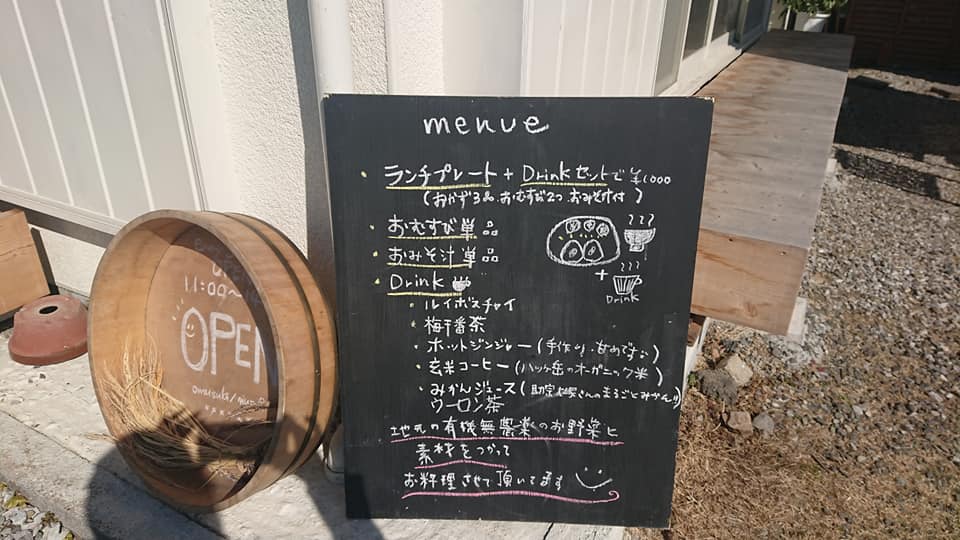 menue
・ランチプレート + Drinkセットで ¥1000
(おかず3品.おむすび2つ.おみそ汁付)
・おむすび単品
・おみそ汁単品
・Drink
Drink
・ルイボスチャイ
・梅干番茶
・ホットジンジャー(手作り.甘めです)
・玄米コーヒー(八ヶ岳のオーガニック米)
・みかんジュース(さんのまるごとみかん)
ウーロン茶
地元の有機無農薬のお野菜と
素材をつかって
お料理させて頂いてます
11:00〜
OPEN